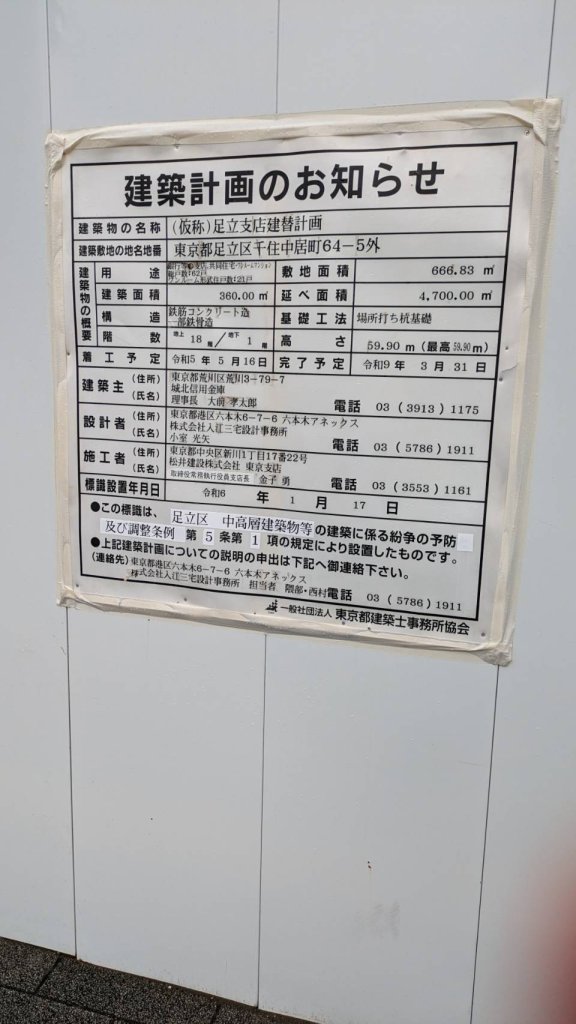 建築計画のお知らせ
建築物の名称 (仮称)足立支店建替計画
建築敷地の地名地番 東京都足立区千住中居町64−5外
建築物の概要
用途 銀行等の支店、共同住宅・ワンルームマンション
総戸数:62戸
ワンルーム形式住戸数:21戸
敷地面積 666.83 ㎡
建築面積 360.00 ㎡ 延べ面積 4,700.00 ㎡
構造 鉄筋コンクリート造
一部鉄骨造
基礎工法 場所打ち杭基礎
階数 地上 18 階/地下 1 階 高さ 59.90 m (最高 59.90 m)
着工予定 令和5 年 5 月 16 日 完了予定 令和9 年 3 月 31 日
建築主 (住所) 東京都荒川区荒川3−79−7
城北信用金庫
(氏名) 理事長 大前 孝太郎 電話 03 (3913) 1175
設計者 (住所) 東京都港区六本木6−7−6 六本木アネックス
(氏名) 株式会社入江三宅設計事務所
小室 光矢 電話 03 (5786) 1911
施工者 (住所) 東京都中央区新川1丁目17番22号
(氏名) 松井建設株式会社 東京支店
取締役常務執行役員支店長 金子 勇 電話 03 (3553) 1161
標識設置年月日 令和6 年 1 月 17 日
●この標識は、足立区 中高層建築物等の建築に係る紛争の予防
及び調整条例 第 5 条第 1 項の規定により設置したものです。
●上記建築計画についての説明の申出は下記へ御連絡下さい。
(連絡先) 東京都港区六本木6−7−6 六本木アネックス
株式会社入江三宅設計事務所 担当者 隈部・西村 電話 03 (5786) 1911
一般社団法人 東京都建築士事務所協会